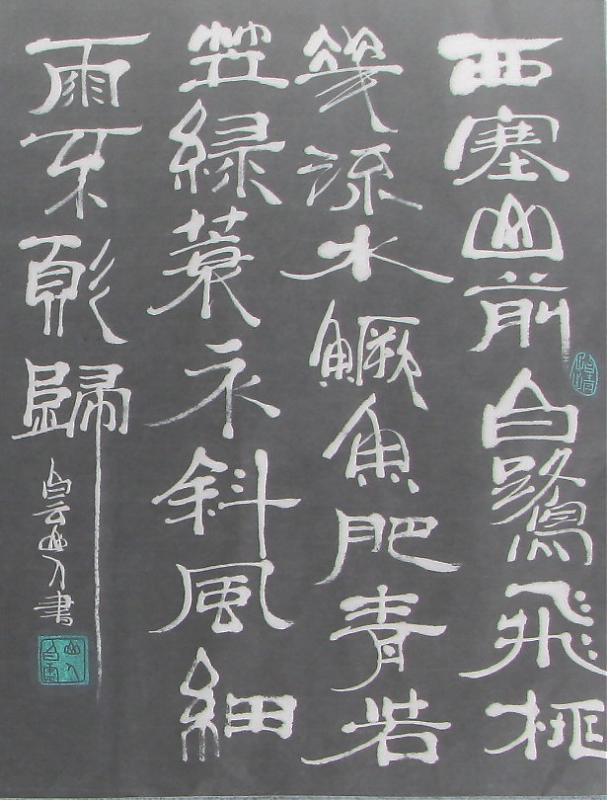 西塞山前白鷺飛桃
花流水鱖魚肥青若
笠緑蓑衣斜風細
雨不須歸
白雲山人書